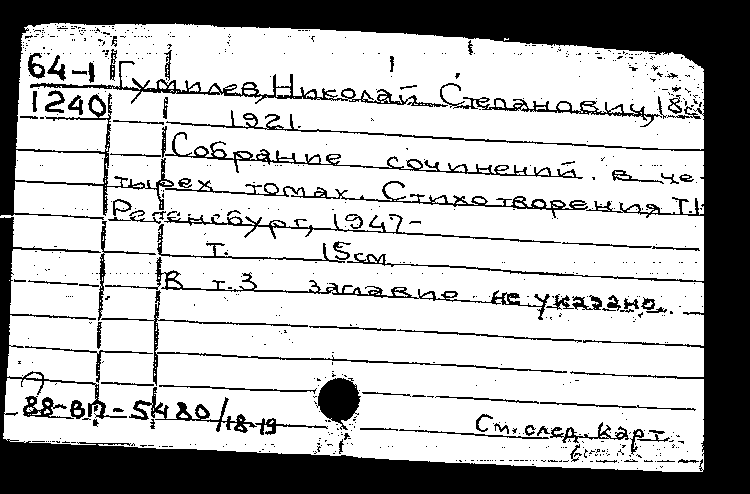 64-1 Гумилев, Николай Степанович, 18
1240
1921.
Собрание сочинений. в че-
тырех томах. Стихотворения Т.1
Регенсбург, 1947-
т. 15см.
В т.3 заглавие не указано.
88-ВП-5480/18-19
См. след. карт.